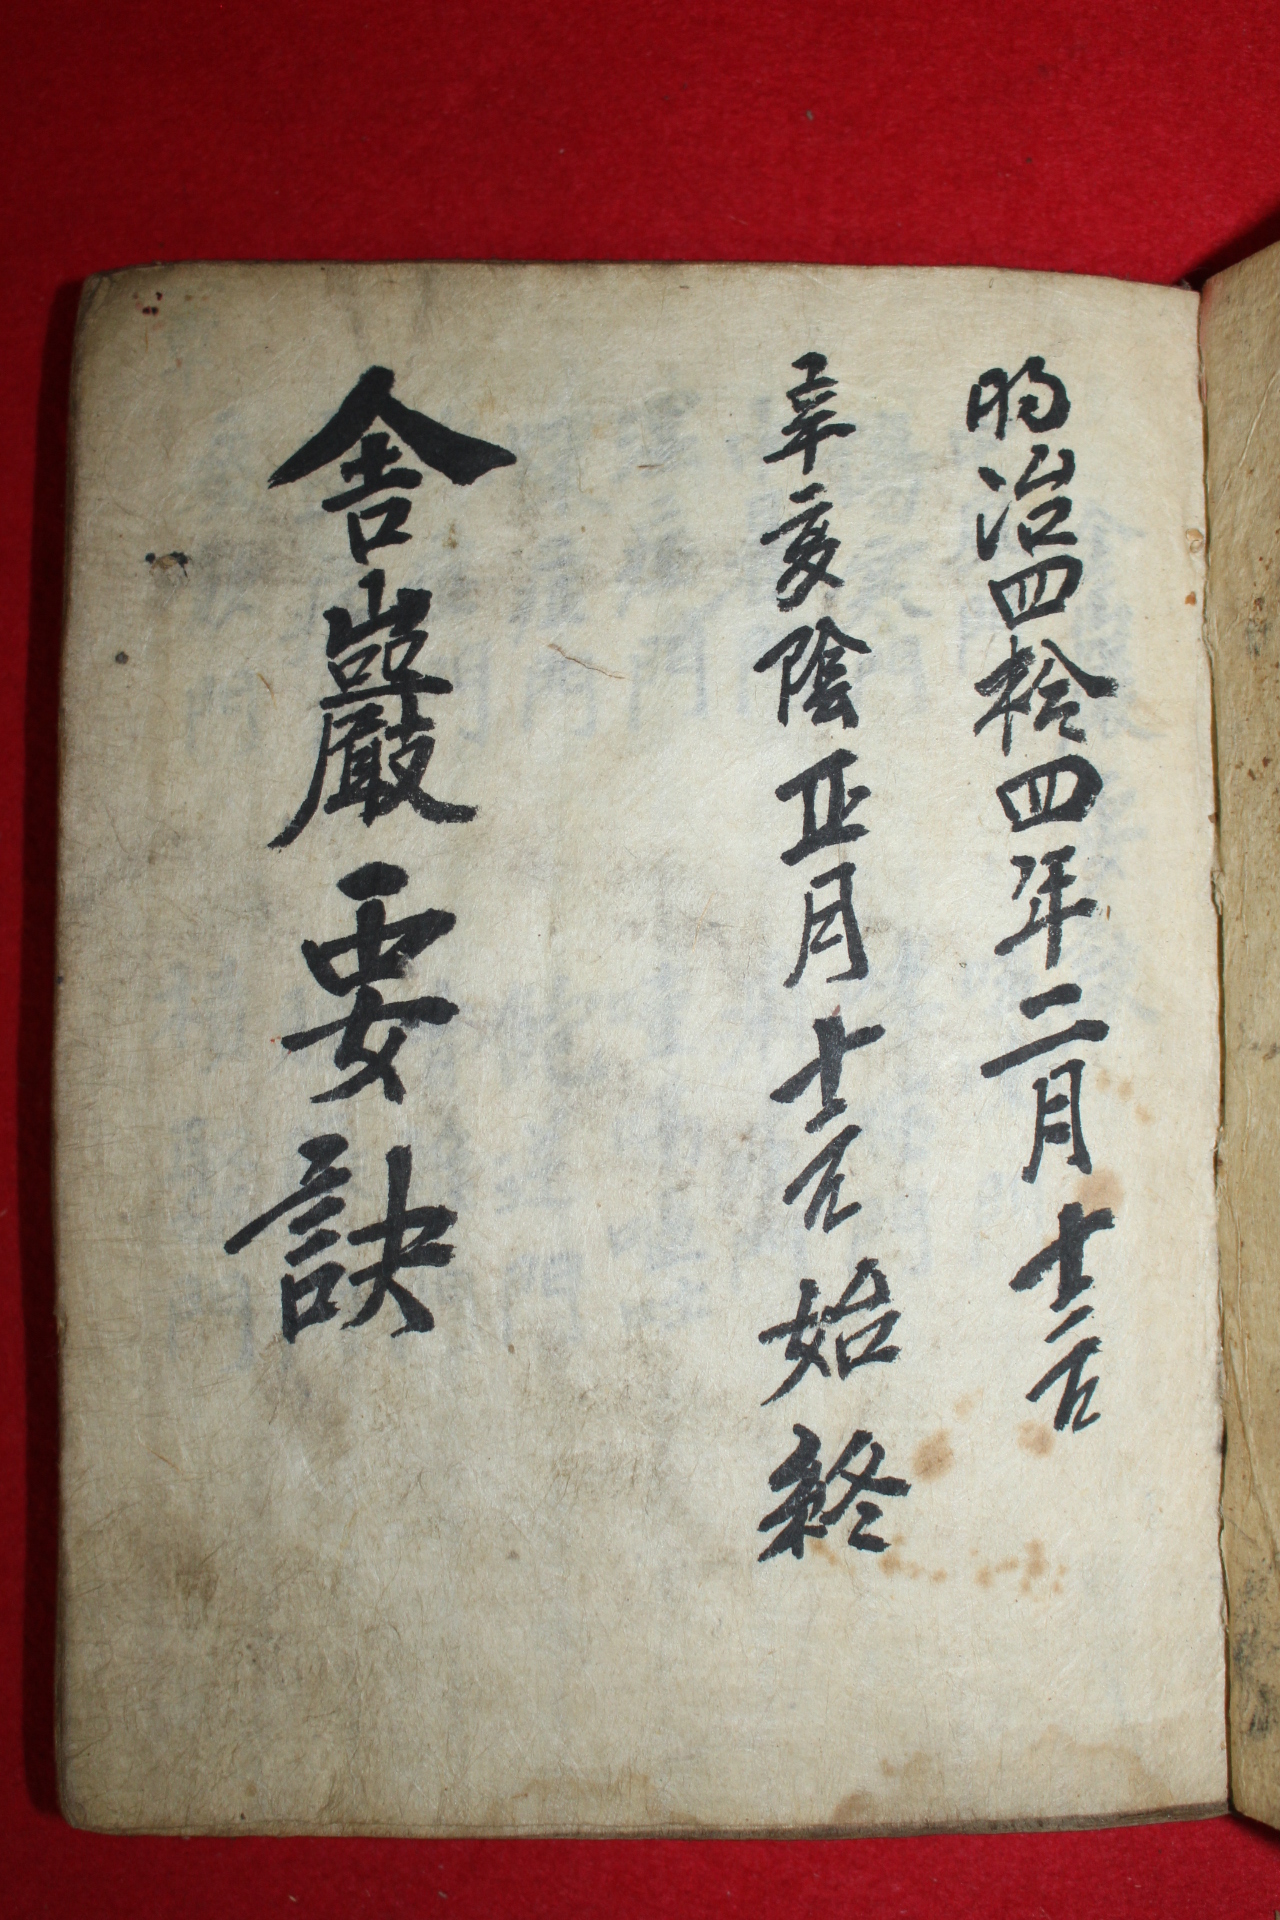 明治四拾四年二月十
辛亥陰正月十 始終
舍巖要訣